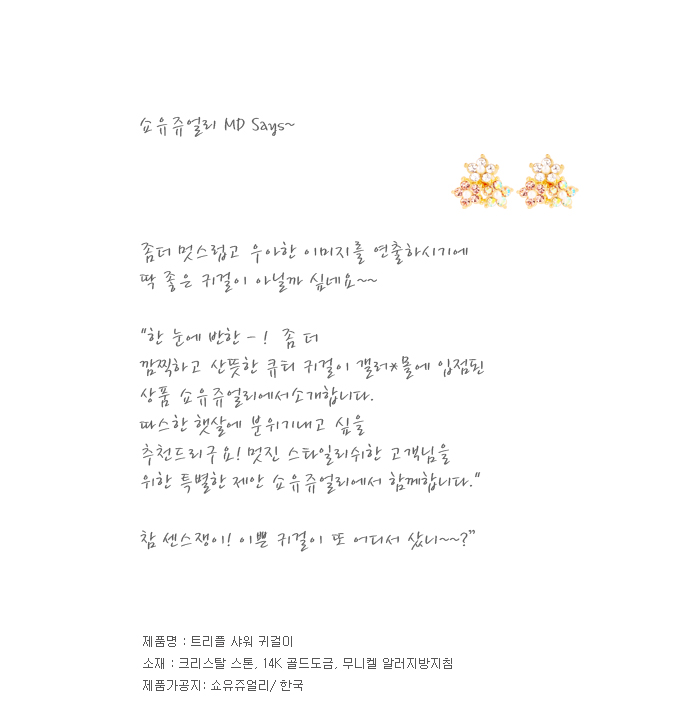 쇼유쥬얼리 MD Says~
좀더 멋스럽고 우아한 이미지를 연출하시기에
딱 좋은 귀걸이 아닐까 싶네요~~
"한 눈에 반한 - ! 좀 더
깜찍하고 산뜻한 큐티 귀걸이 갤러*몰에 입점된
상품 쇼유쥬얼리에서소개합니다.
따스한 햇살에 분위기내고 싶을
추천드리구요! 멋진 스타일리쉬한 고객님을
위한 특별한 제안 쇼유쥬얼리에서 함께합니다."
참 센스쟁이! 이쁜 귀걸이 또 어디서 샀니~~?"
제품명 : 트리플 샤워 귀걸이
소재 : 크리스탈 스톤, 14K 골드도금, 무니켈 알러지방지침
제품가공지: 쇼유쥬얼리/ 한국